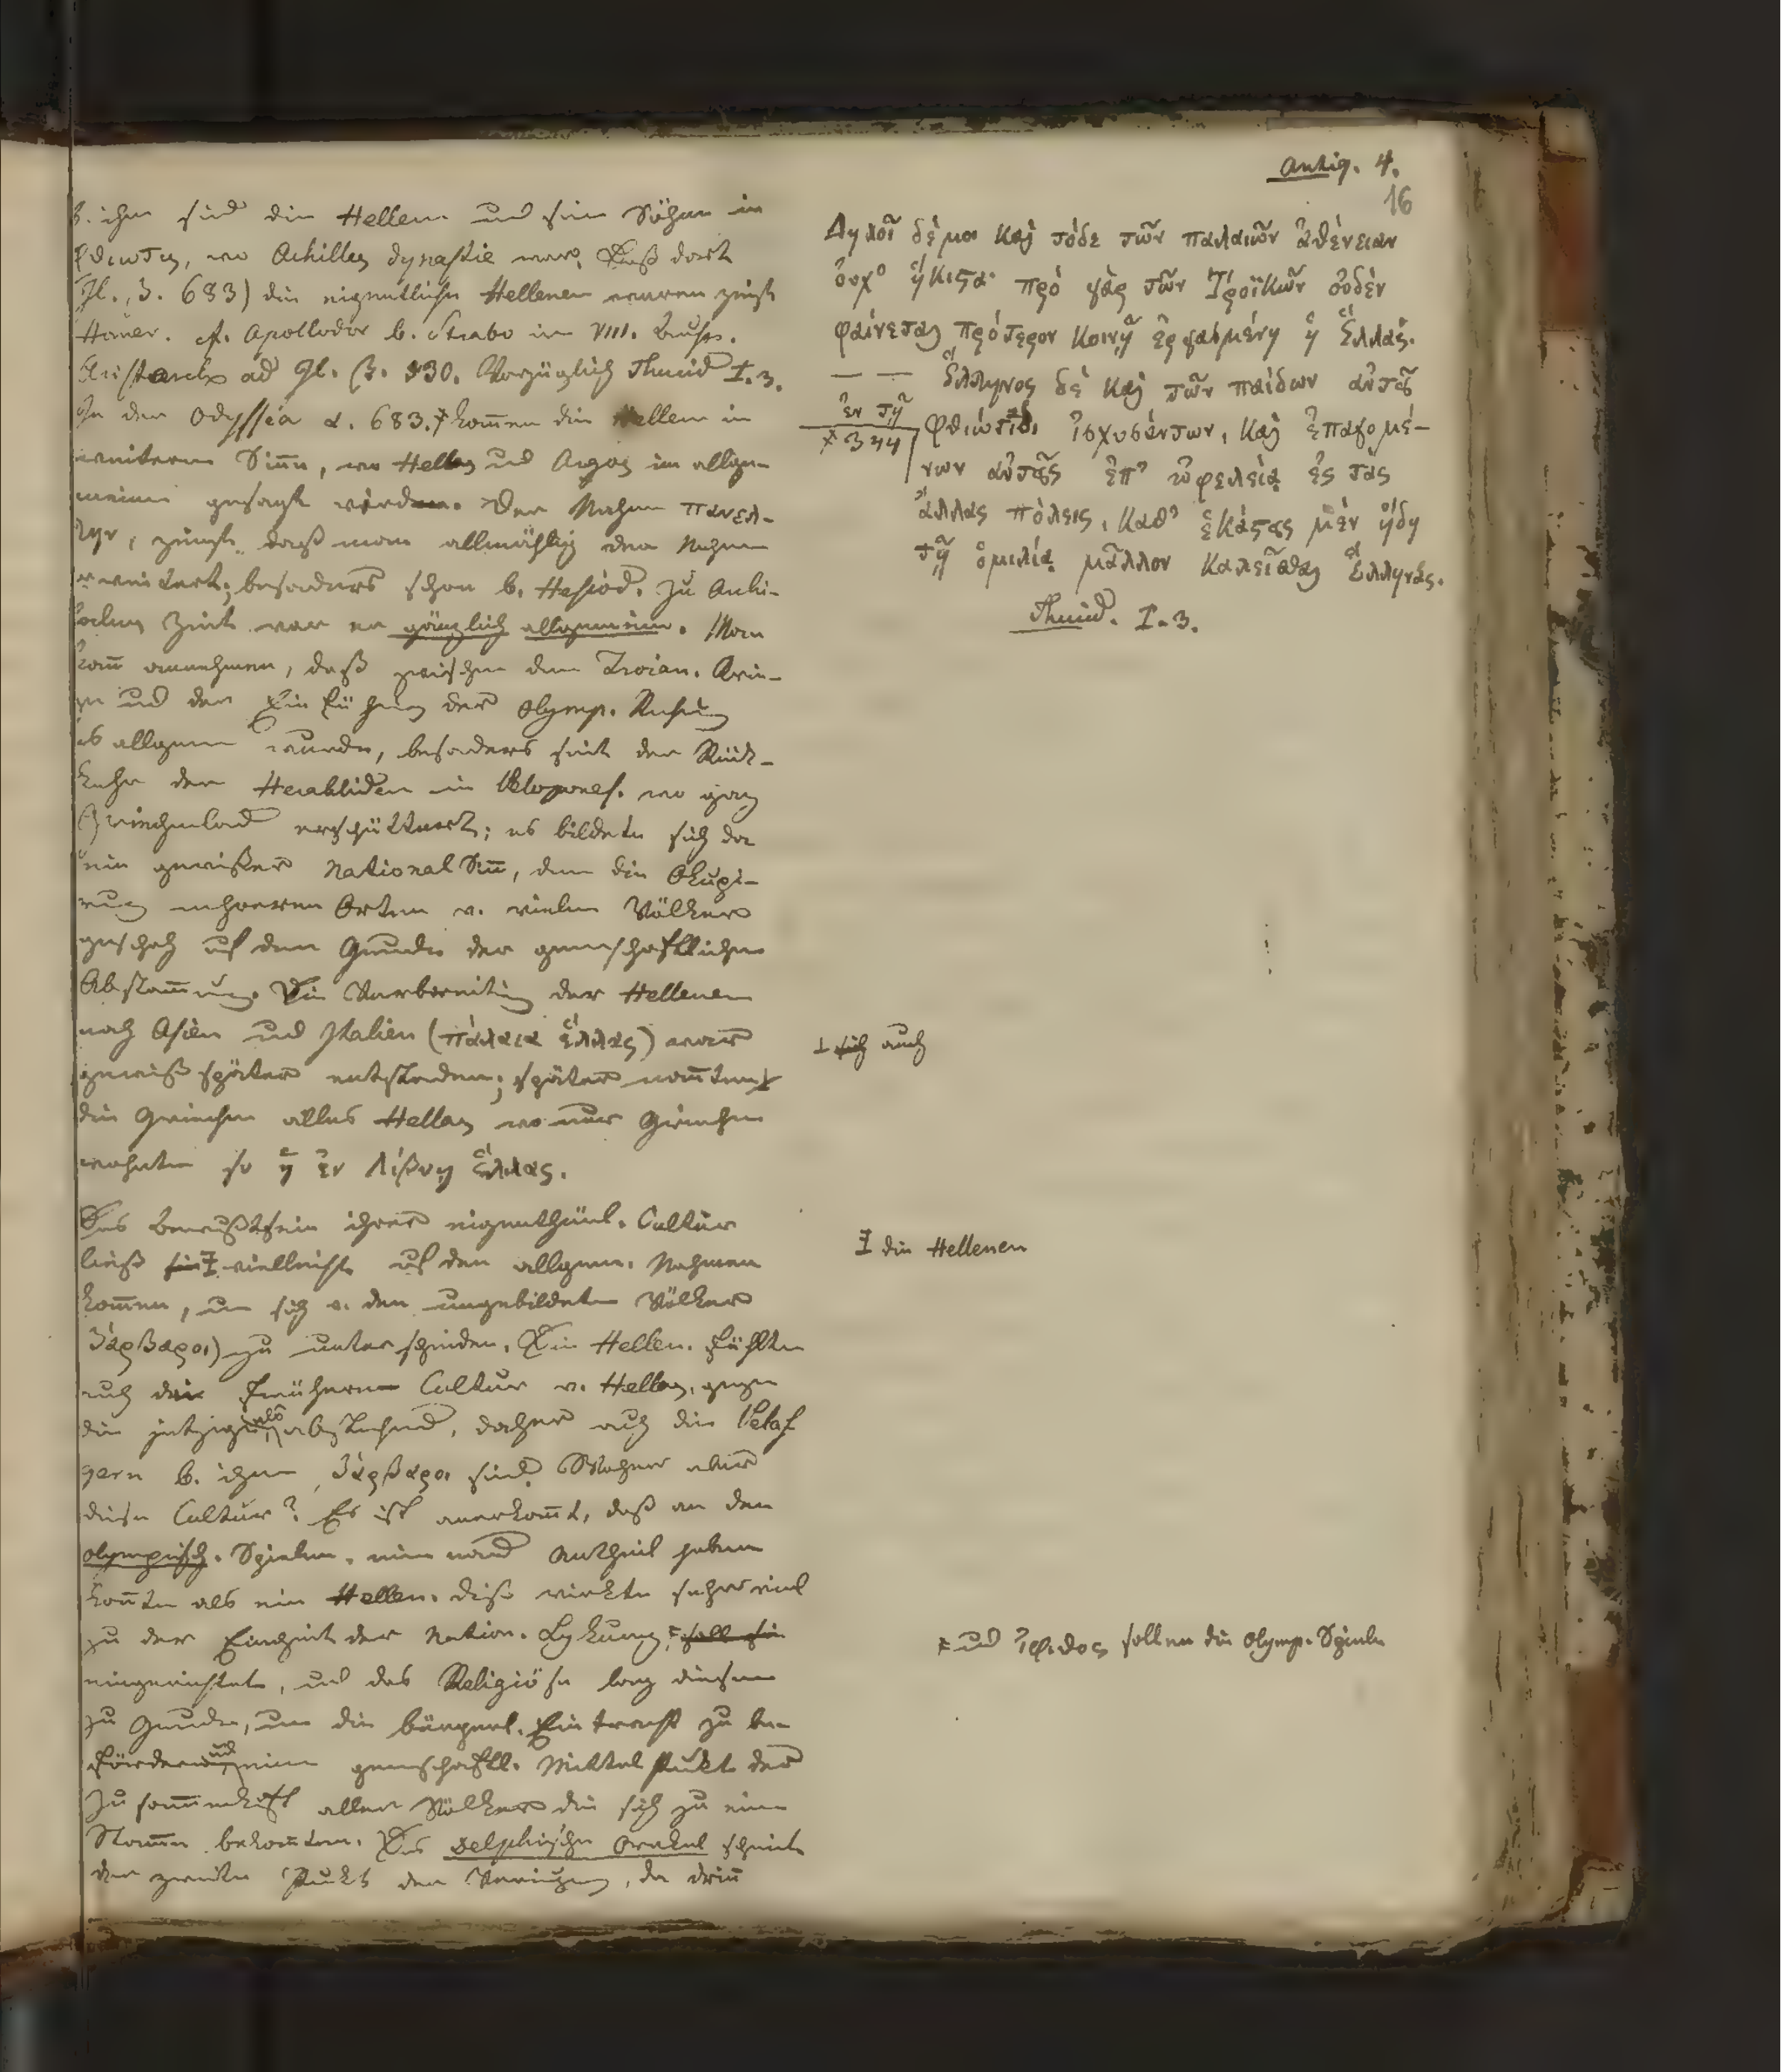 Antiq. 4.
16
b. ihm sind die Hellen und seine Söhne in
Φθιωτις, wo Achilles dynastie war. Daß dort
Jl., β. 683) die eigentlichen Hellenen waren zeigt
Homer. cf. Apollodor b. Strabo im VIII. Buch.
Aristarch ad Jl. β. 530. Vorzüglich Thucid I.3.
In der Odyssea α. 683. kommen die Hellen in
weiterm Sinn, wo Hellas und Argos im allge-
meinen gesagt werden. Der Nahme πανελ-
ληρ, zeigt, daß man allmählig den Nahmen
erweitert; besonders schon b. Hesiod. Zu Archi-
lochus Zeit war er gänzlich allgemein. Man
kann annehmen, daß zwischen dem Troian. Krie-
ge und der Einführung der olymp. Rechnung
es allgemein wurde, besonders seit der Rück-
kehr der Herakliden in Pelopones. wo ganz
Griechenland erschüttert; es bildete sich da
ein gewißer National Sinn, denn die Okupi-
rung mehrerer Orten v. vielen Völkern
geschah auf dem Grunde der gemschaftlichen
Abstammung. Die Verbreitung der Hellenen
nach Asien und Italien (πάλαια ἕλλας) war
gewiß später entstanden; später nannten
die Griechen alles Hellas wo nur Griechen
wohnten so ἡ ἐν Λιβυῃ ἕλλας.
Das Bewußtsein ihrer eigenthüml. Cultur
ließ vielleicht auf den allgem. Nahmen
kommen, um sich v. den ungebildeten Völkern
βάρβαροι) zu unterscheiden. Die Hellen. fühlten
auch die frühere Cultur v. Hellas, gegen
die jetzige als abstechend, daher auch die Pelas
gern b. ihnen βάρβαροι sind. Woher aber
diese Cultur? Es ist anerkannt, daß an den
olympisch. Spielen, niemand Antheil haben
konnte als ein Hellen. diß wirkte sehr viel
zu der Einheit der Nation. Lykurg, soll sie
eingerichtet, und das Religiöse lag diesem
zu Grunde, um die bürgerl. Eintracht zu be-
fördern und einen gemschaftl. Mittelpukt der
Zusammenkuft aller Völker die sich zu einem
Stamme bekannten. Das delphische Orakel scheint
der zweite Pukt der Vereinigung, da drin
Δηλοῖ δέ μοι καὶ τόδε τῶν παλαιῶν ἀσθένειαν
οὐχ' ἥκιστα· πρὸ γὰρ τῶν Τρωϊκῶν οὐδὲν
φαίνεται πρότερον κοινῇ ἐργασμένη ἡ Ἑλλάς.
— — Ἕλληνος δὲ καὶ τῶν παίδων αὐτοῦ
ἐν τῇ Φθιώτιδι ἰσχυσάντων, καὶ ἐπαγομέ-
+ 344
νων αὐτοὺς ἐπ' ὠφελείᾳ ἐς τὰς
ἄλλας πόλεις, καθ' ἑκάστους μὲν ἤδη
τῇ ὁμιλίᾳ μᾶλλον καλεῖσθαι Ἕλληνάς.
Thucid. I-3.
⊥ sich auch
Ɨ die Hellenen
‡ und Ἴφιτος sollen die Olymp. Spiele